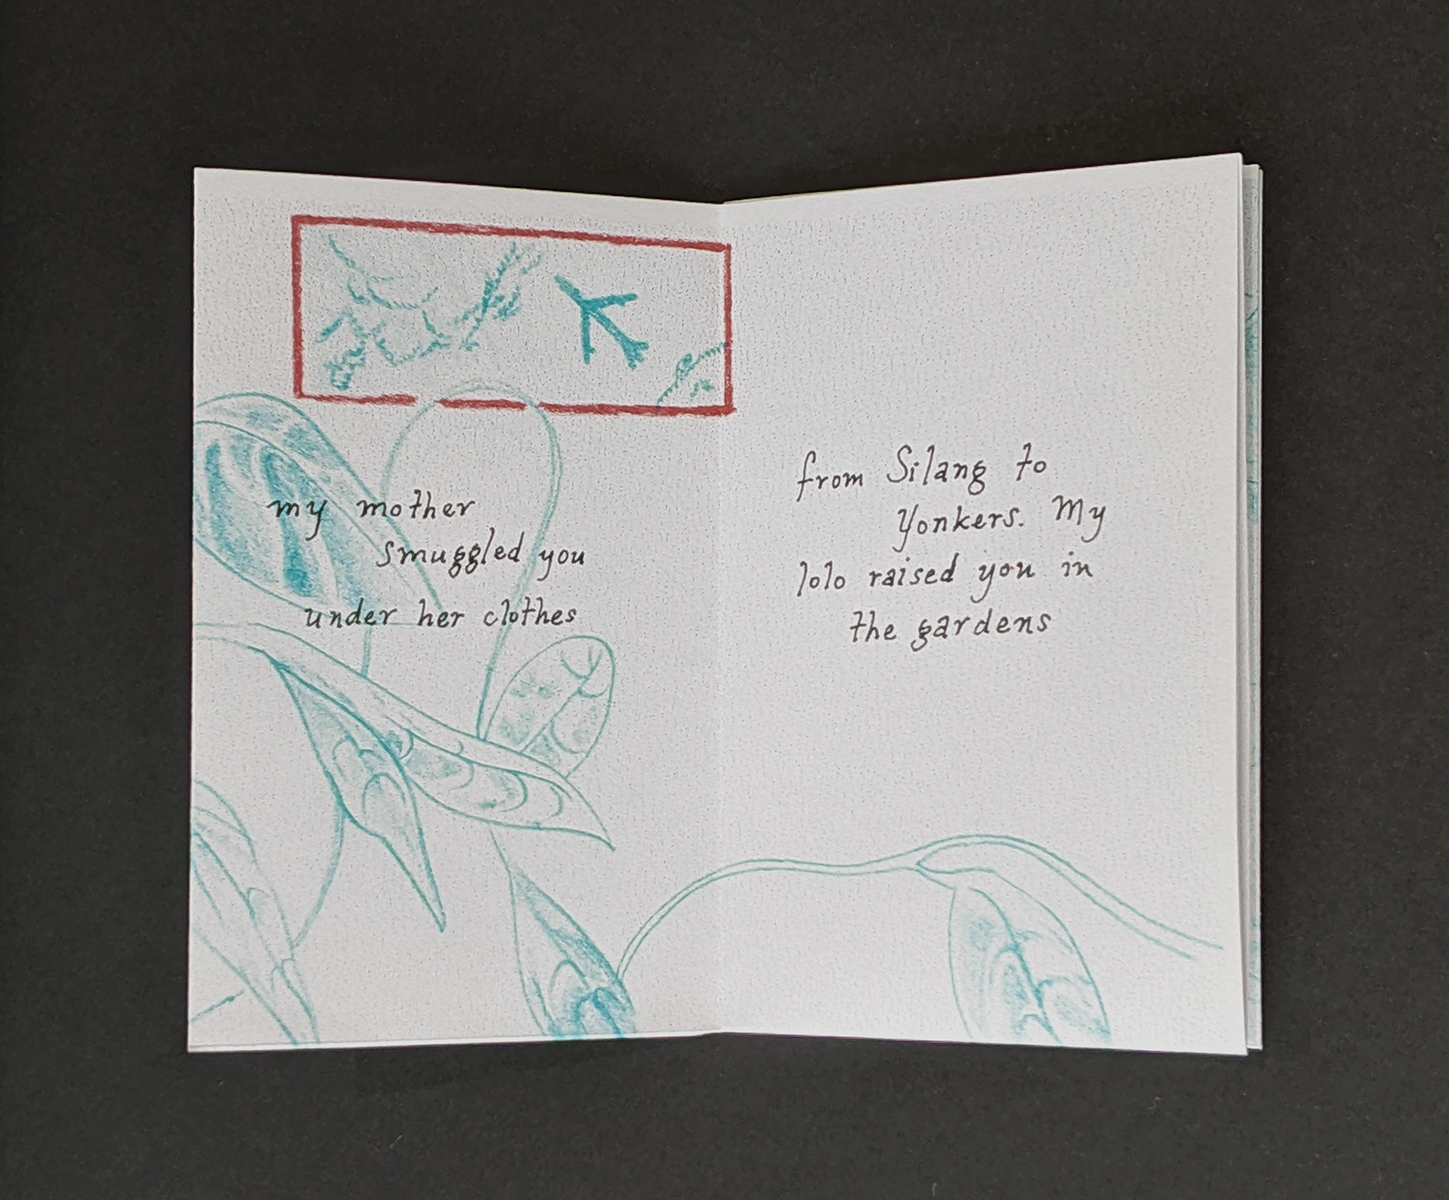 my mother
smuggled you
under her clothes
from Silang to
Yonkers. My
lolo raised you in
the gardens